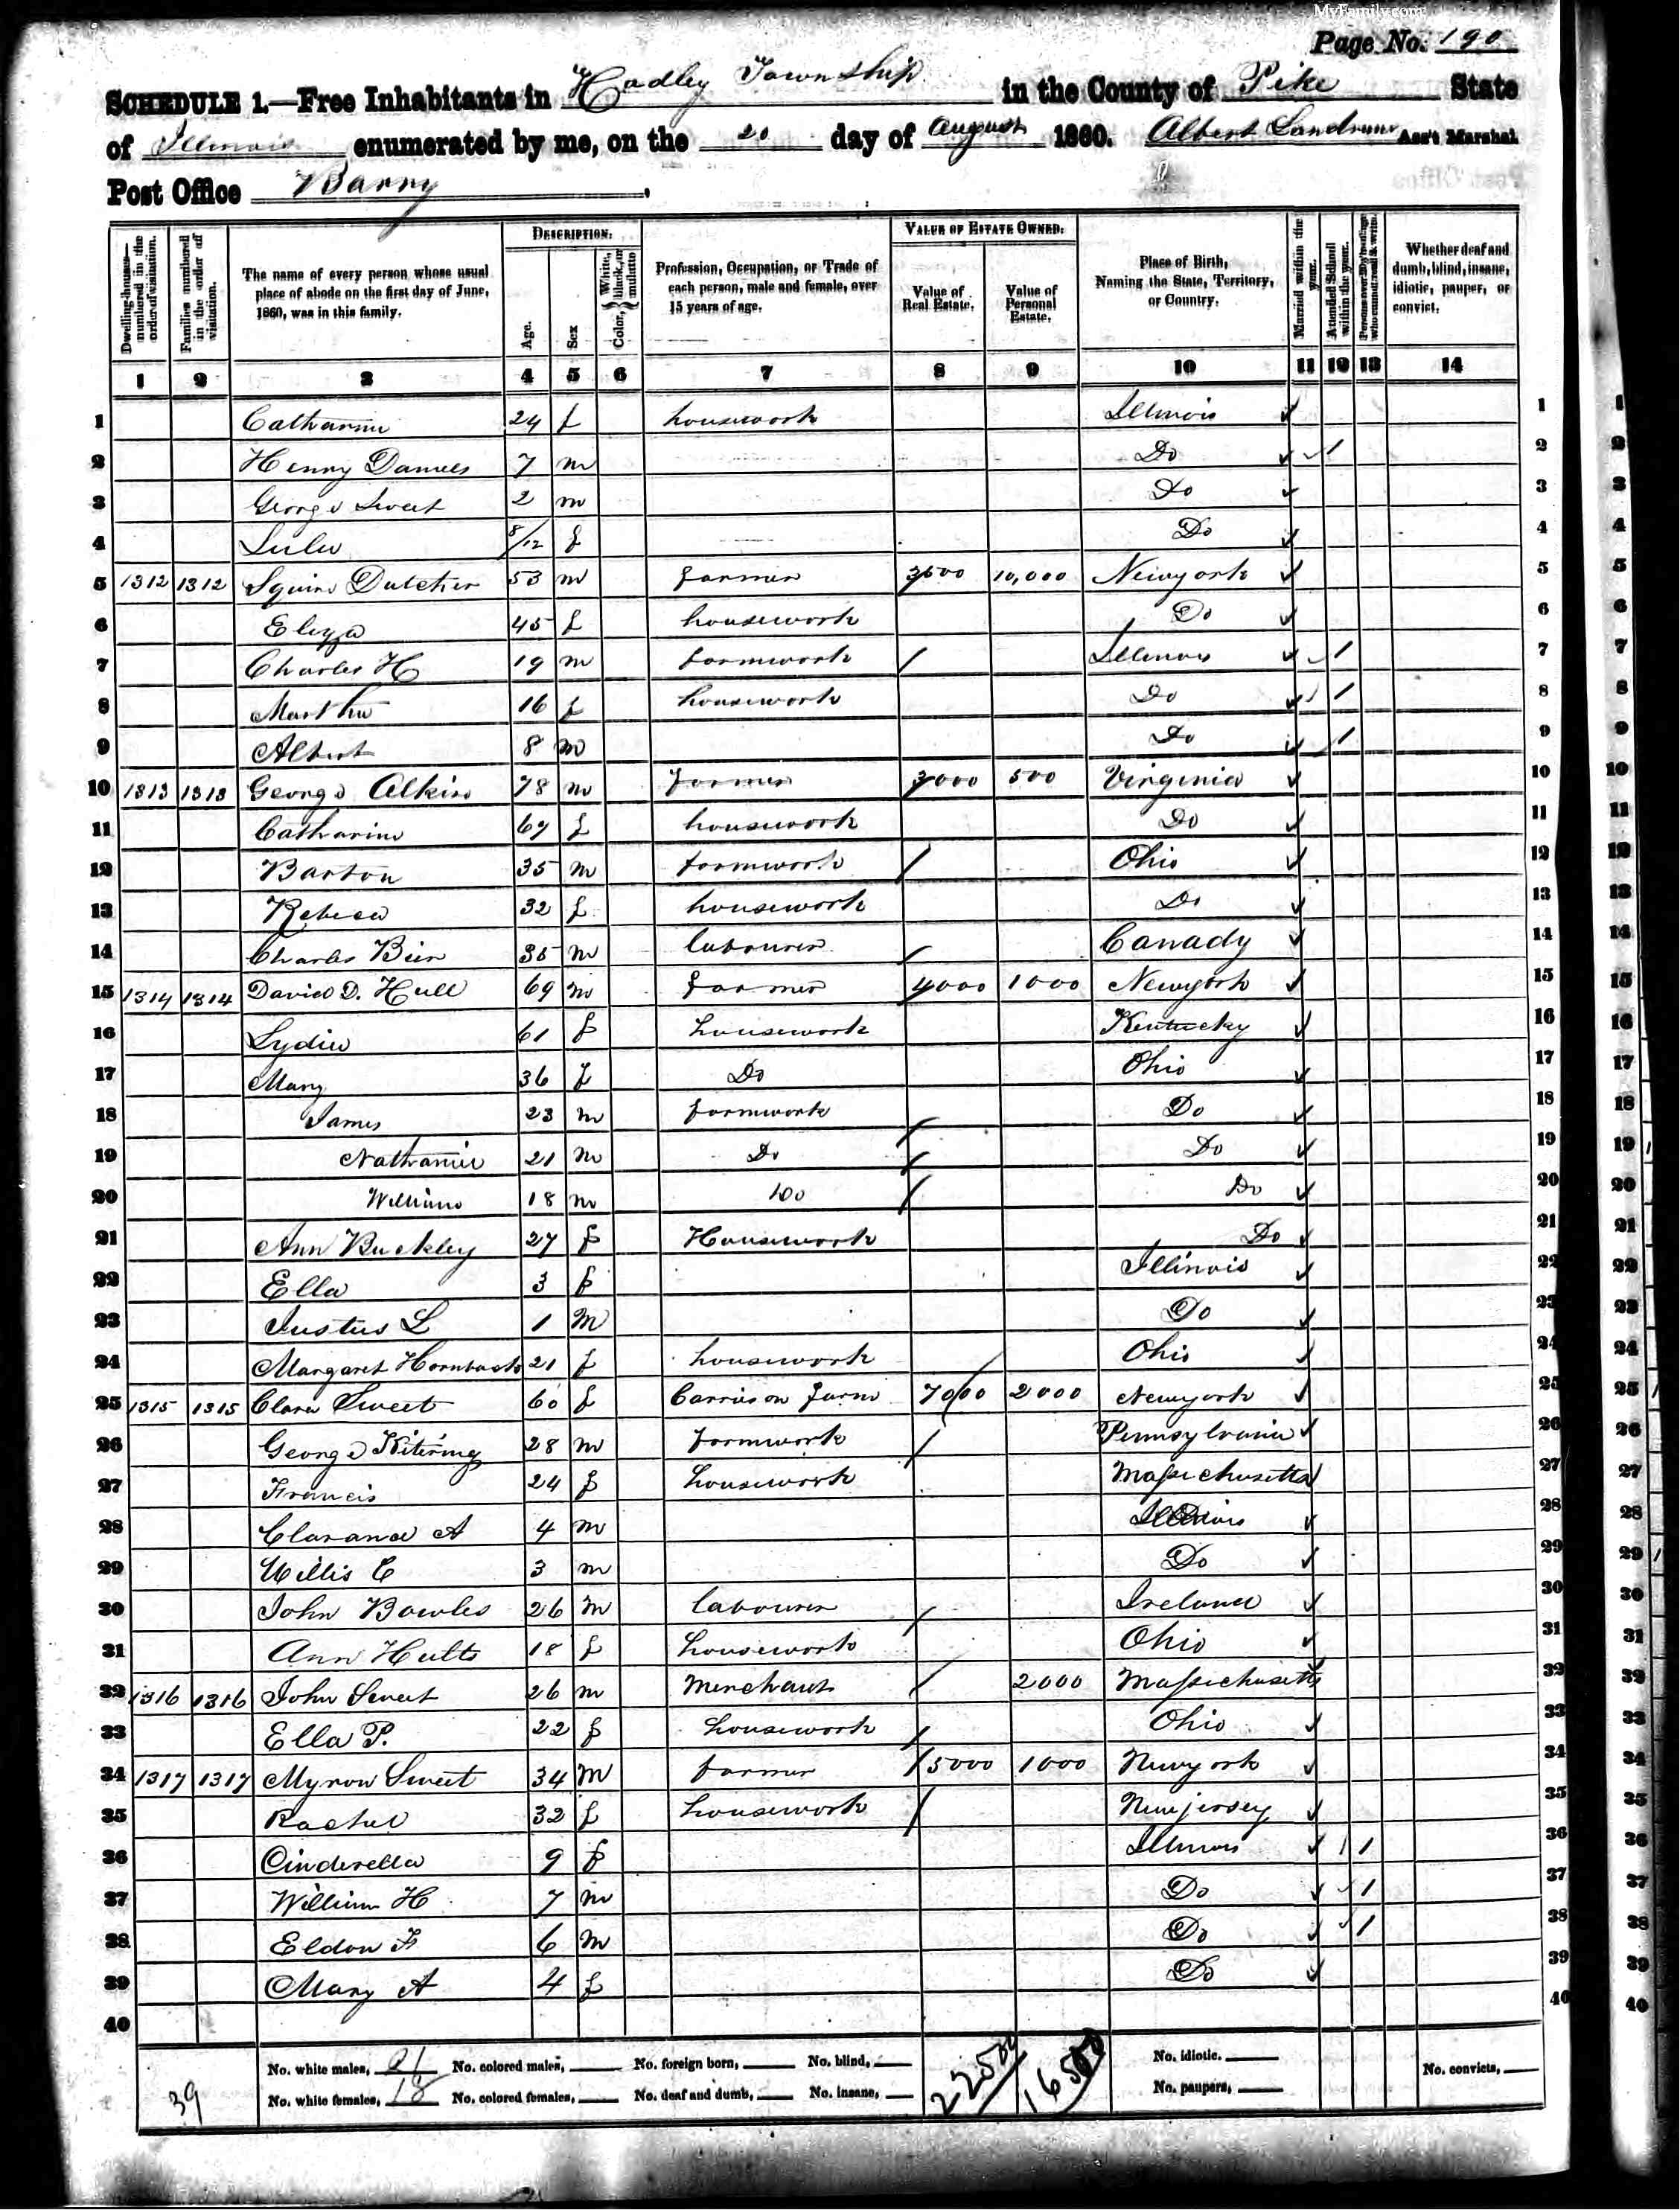 MyFamily.com
Page No. 190
SCHEDULE 1.—Free Inhabitants in Hadley Township in the County of Pike State
of Illinois enumerated by me, on the 20 day of August 1860. Albert Landrum Ass't Marshal
Post Office Barry.
Dwelling-houses—numbered in the order of visitation. Families numbered in the order of visitation. The name of every person whose usual place of abode on the first day of June, 1860, was in this family. DESCRIPTION. Age. Sex Color, White, black, or mulatto Profession, Occupation, or Trade of each person, male and female, over 15 years of age. VALUE OF ESTATE OWNED. Value of Real Estate. Value of Personal Estate. Place of Birth, Naming the State, Territory, or Country. Married within the year. Attended School within the year. Persons over 20 y'rs of age who cannot read & write. Whether deaf and dumb, blind, insane, idiotic, pauper, or convict.
1 2 3 4 5 6 7 8 9 10 11 12 13 14
1 Catharine 24 f housework Illinois 1
2 Henry Daniels 7 m Do 1 2
3 George Sweet 2 m Do 3
4 Lulu 8/12 f Do 4
5 1312 1312 Squire Dutcher 53 m farmer 3500 10,000 Newyork 5
6 Eliza 45 f housework Do 6
7 Charles H 19 m farmwork / Illinois 1 7
8 Martha 16 f housework Do 1 8
9 Albert 8 m Do 1 9
10 1313 1313 George Alkire 78 m farmer 3000 500 Virginia 10
11 Catharine 67 f housework Do 11
12 Barton 35 m farmwork / Ohio 12
13 Rebeca 32 f housework Do 13
14 Charles 35 m labourer / Canady 14
15 1314 1314 David D. Hull 69 m farmer 4000 1000 Newyork 15
16 Lydia 61 f housework Kentucky 16
17 Mary 36 f Do Ohio 17
18 James 23 m farmwork / Do 18
19 Nathaniel 21 m Do / Do 19
20 William 18 m Do / Do 20
21 Ann Buckley 27 f Housework Do 21
22 Ella 3 f Illinois 22
23 Justus L 1 M Do 23
24 Margaret 21 f housework / Ohio 24
25 1315 1315 Clara Sweet 60 f Carries on farm 7000 2000 Newyork 25
26 George 28 m farmwork / Pennsylvania 26
27 Francis 24 f housework Massichusetts 27
28 Clarance A 4 m Illinois 28
29 Willis C 3 m Do 29
30 John Bowles 26 m labourer / Ireland 30
31 Ann Hults 18 f housework Ohio 31
32 1316 1316 John Sweet 26 m Merchant / 2000 Massichusetts 32
33 Ella P. 22 f housework / Ohio 33
34 1317 1317 Myron Sweet 34 M farmer / 5000 1000 Newyork 34
35 Rachel 32 f housework / Newjersey 35
36 Cinderella 9 f Illinois 1 36
37 William H 7 m Do 1 37
38 Eldon F 6 m Do 1 38
39 Mary A 4 f Do 39
40 40
No. white males, 21 No. colored males, No. foreign born, No. blind, No. idiotic. No. convicts,
39 No. white females, 18 No. colored females, No. deaf and dumb, No. insane, 22500 16500 No. paupers,